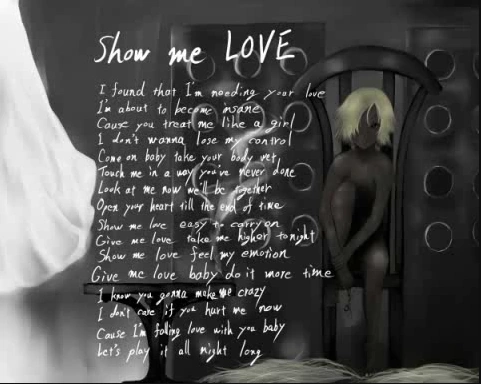 Show me LOVE
I found that I'm needing your love
I'm about to become insane
Cause you treat me like a girl
I don't wanna lose my control
Come on baby take your body wet
Touch me in a way you've never done
Look at me now we'll be together
Open your heart till the end of time
Show me love easy to carry on
Give me love take me higher tonight
Show me love feel my emotion
Give me love baby do it more time
I know you gonna make me crazy
I don't care if you hurt me now
Cause I'm falling love with you baby
Let's play it all night long